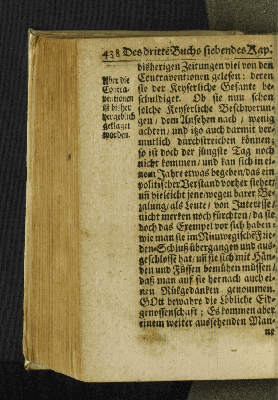 438 Des dritte Buchs siebendes Kap.
bißherigen Zeitungen viel von den
Contraventionen gelesen: deren
sie der Keyserliche Gesante be-
schuldiget. Ob sie nun schon
solche Keyserliche Beschwerun-
gen / dem Ansehen nach / wenig
achten / und itzo auch darmit ver-
mutlich durchstreichen können;
so ist doch der jüngste Tag noch
nicht kommen / und kan sich in ei-
nem Jahre etwas begeben / das ein
politischer Verstand vorher siehet /
und vieleicht jene / wegen barer Be-
zalung / als Leute / von Interesse /
nicht merken noch fürchten / da sie
doch das Exempel vor sich haben:
wie man sie im Niemwegische Frie-
den-Schluß übergangen und aus-
geschlossē hat / uñ sie sich mit Hän-
den und Füssen bemühen müssen /
daß man auf sie hernach auch ei-
nen Rükgedanken genommen.
GOtt bewahre die Löbliche Eid-
genossenschaft; Es kommen aber
einem weiter aussehenden Man-
ne
Aber die
Contra-
ventionen
ist bißher
vergeblich
geklaget
worden.